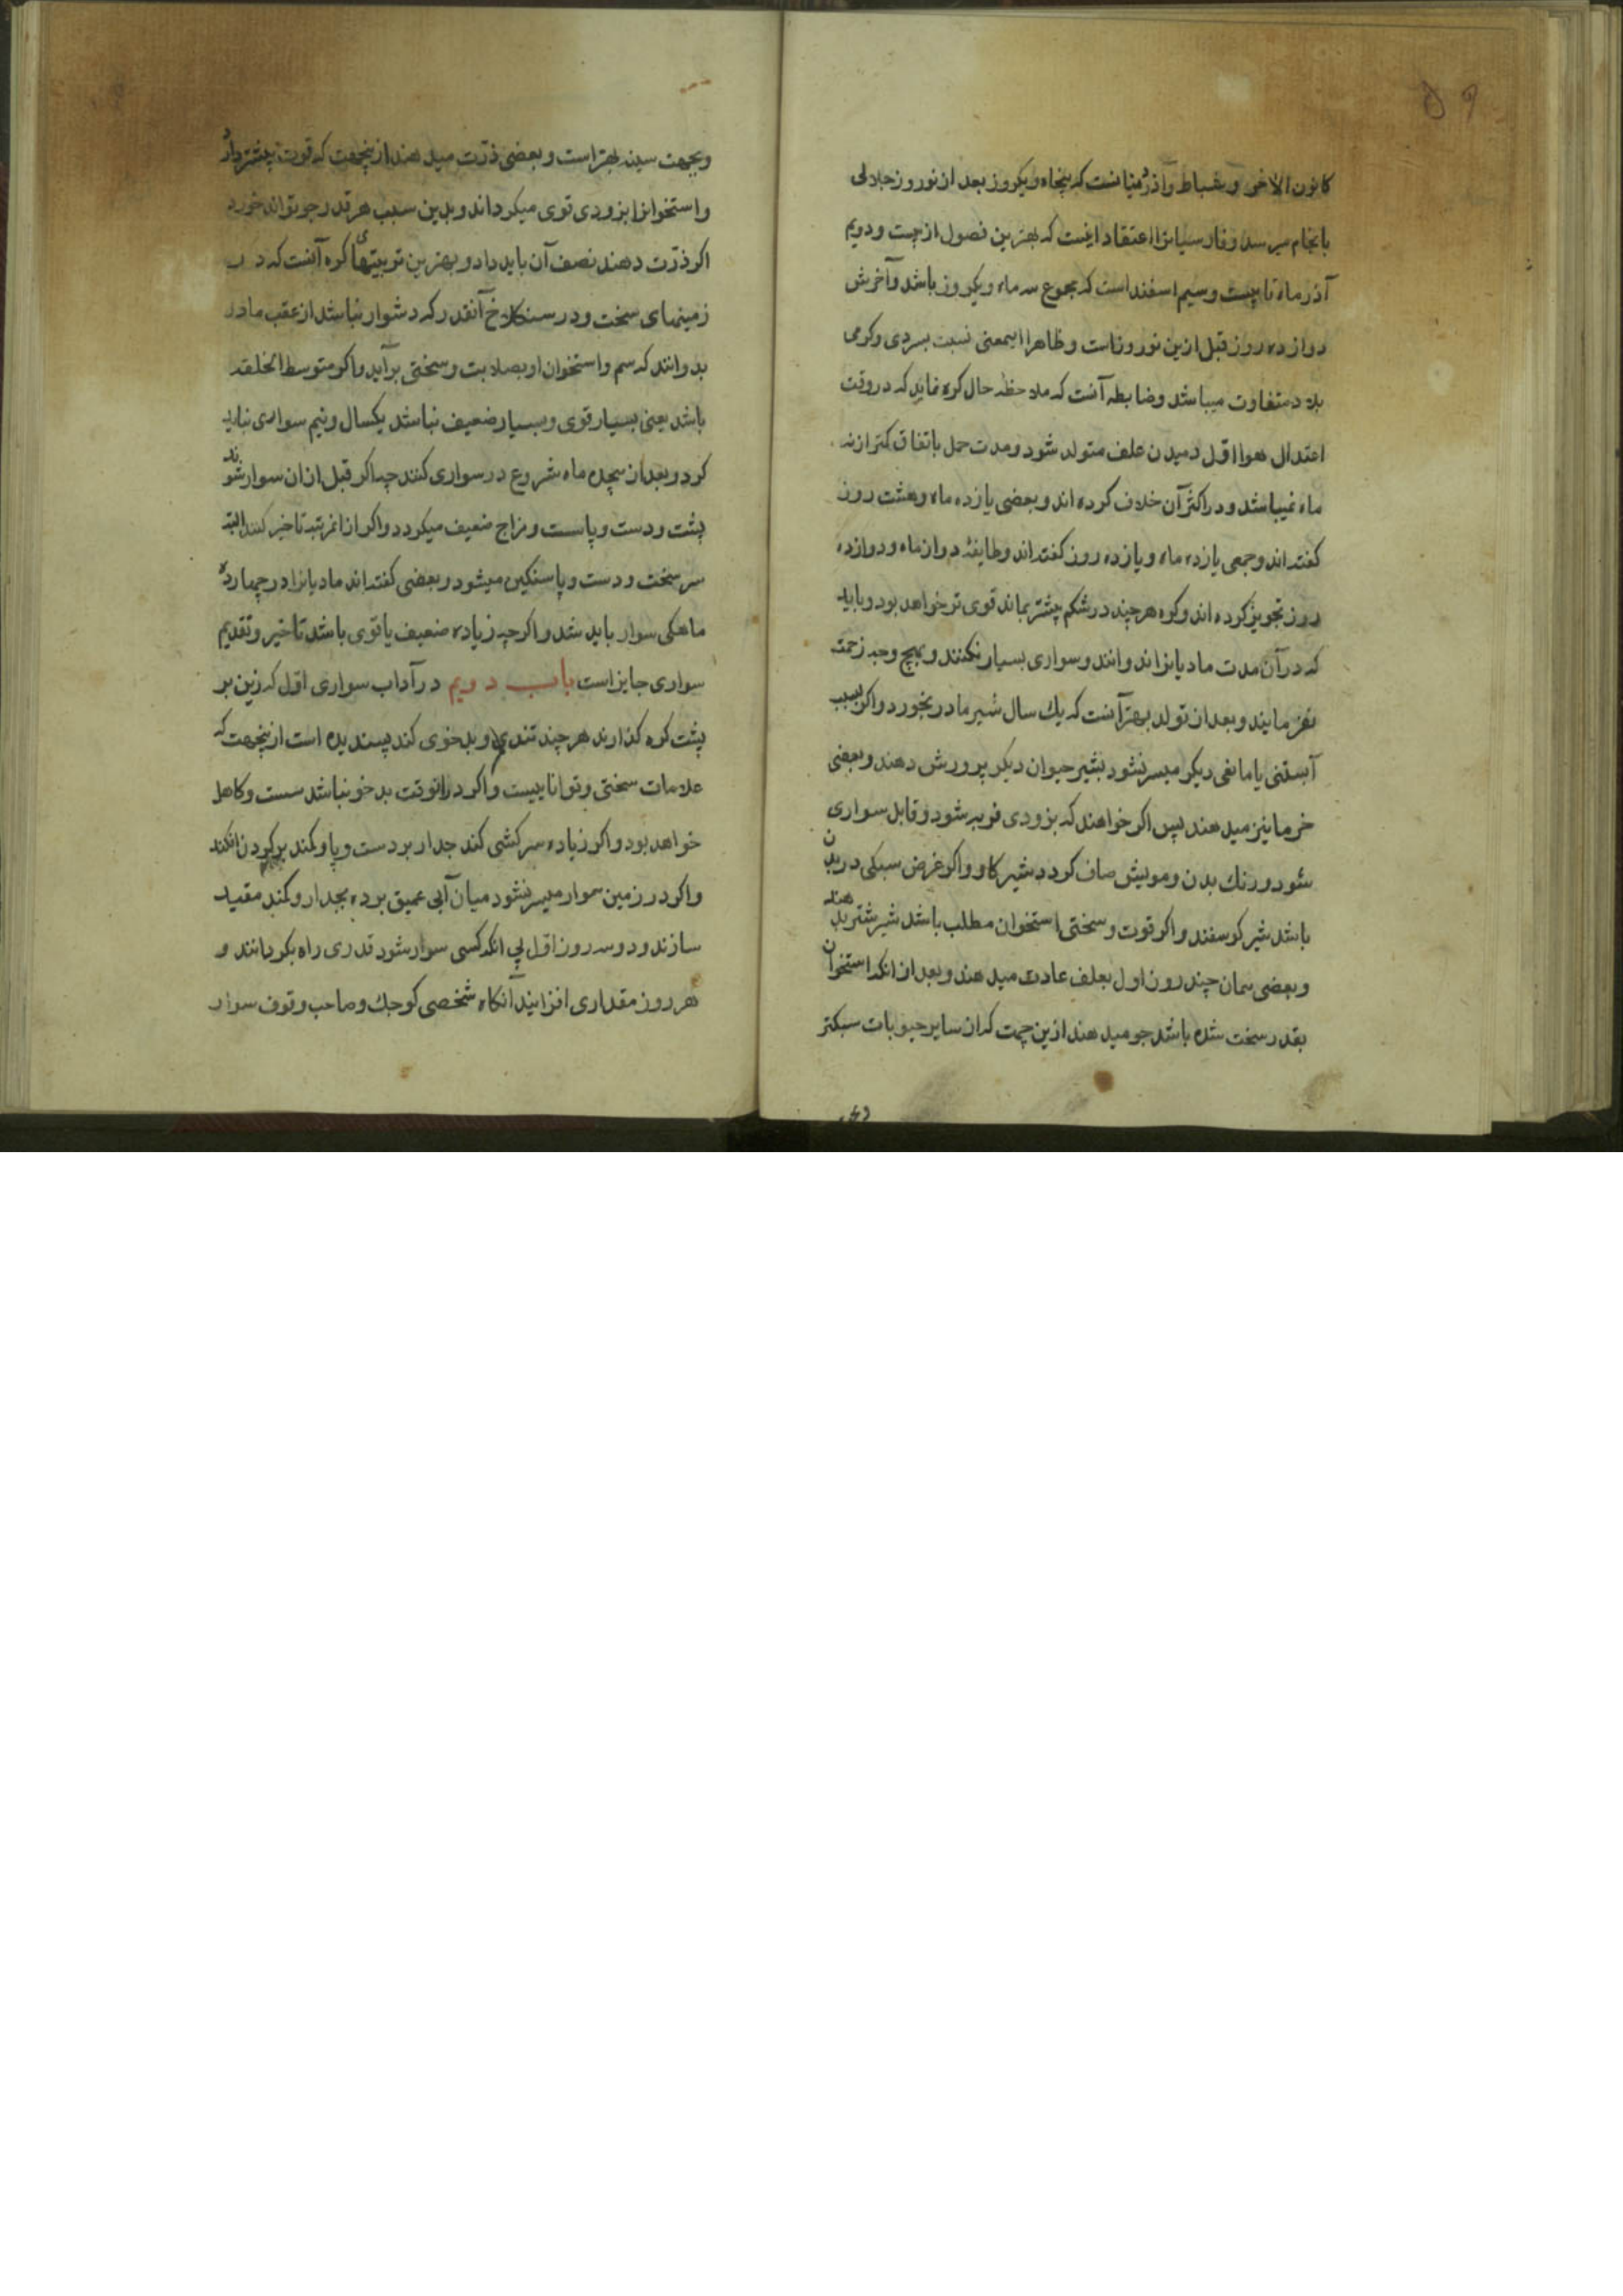 ۵۹
کانون الاخر و شباط و آذر میانست که پنجاه و یکروز بعد از نوروز جلالی
بانجام میرسد و فارسیانرا اعتقاد اینست که بهترین فصول از بیست و دویم
آذرماه تا بیست و سیم اسفند است که مجموع سه ماه و یکروز باشد و آخرش
دوازده روز قبل ازین نوروز است و ظاهرا اینمعنی نسبت بسردی و کرمی
بلاد متفاوت میباشد و ضابطه آنست که ملاحظه حال کره نماید که در وقت
اعتدال هوا اول دمیدن علف متولد شود و مدت حمل باتفاق کمتر از نه
ماه نمیباشد و در اکثر آن خلاف کرده اند و بعضی یازده ماه و هشت روز
کفته اند و جمعی یازده ماه و یازده روز کفته اند و طایفهٔ دوازماه و دوازده
روز تجویز کرده اند و کره هر چند در شکم بیشتر بماند قوی تر خواهد بود و باید
که در آن مدت مادیانرا ندوانند و سواری بسیار نکنند و بهیچ وجه زحمت
نفرمایند و بعد از تولد بهتر آنست که یك سال شیر مادر بخورد و اکر بسبب
آبستنی یا مانعی دیکر میسر نشود بشیر حیوان دیکر پرورش دهند و بعضی
خرما نیز میدهند پس اکر خواهند که بزودی فربه شود و قابل سواری
شود و رنك بدن و مویش صاف کردد شیر کاو و اکر غرض سبکی در بدن
باشد شیر کوسفند و اکر قوت و سختی استخوان مطلب باشد شیر شتر بدهند
و بعضی همان چند روز اول بعلف عادت میدهند و بعد از انکه استخوان
بقدر سخت شده باشد جو میدهند ازین جهت که از سایر حبوبات سبکتر
و بجهت سینه بهتر است و بعضی ذرّت میدهند ازینجهت که قوت بیشتر دارد
و استخوانرا بزودی قوی میکرداند و بدین سبب هر قدر جو تواند خورد
اکر ذرّت دهند نصف آن باید داد و بهترین تربیتهای کره آنست که در
زمینهای سخت و در سنکلاخ آنقدر که دشوار نباشد از عقب مادر
بدوانند که سم و استخوان او بصلابت و سختی برآید و اکر متوسط الخلقه
باشد یعنی بسیار قوی و بسیار ضعیف نباشد یکسال و نیم سواری نباید
کرد و بعد از هیجده ماه شروع در سواری کنند چه اکر قبل از ان سوار شوند
پشت و دست و پا سست و مزاج ضعیف میکردد و اکر ازانمرتبه تاخیر کنند البته
سر سخت و دست و پا سنکین میشود و بعضی کفته اند مادیانرا در چهارده
ماهکی سوار باید شد و اکرچه زیاده ضعیف یا قوی باشد تاخیر و تقدیم
سواری جایز است باب دویم در آداب سواری اول که زین بر
پشت کره کذارند هر چند تندی و بدخوی کند پسندیده است ازینجهت که
علامات سختی و تواناییست و اکر در انوقت بدخو نباشد سست و کاهل
خواهد بود و اکر زیاده سرکشی کند جدار بر دست و پا و کمند بر کردن افکند
و اکر در زمین هموار میسر نشود میان آبی عمیق بوده بجدار و کمند مقید
سازند و دو سه روز اول پی انکه کسی سوار شود قدری راه بکردانند و
هر روز مقداری افزایند آنکاه شخصی کوچك و صاحب وقوف سوار